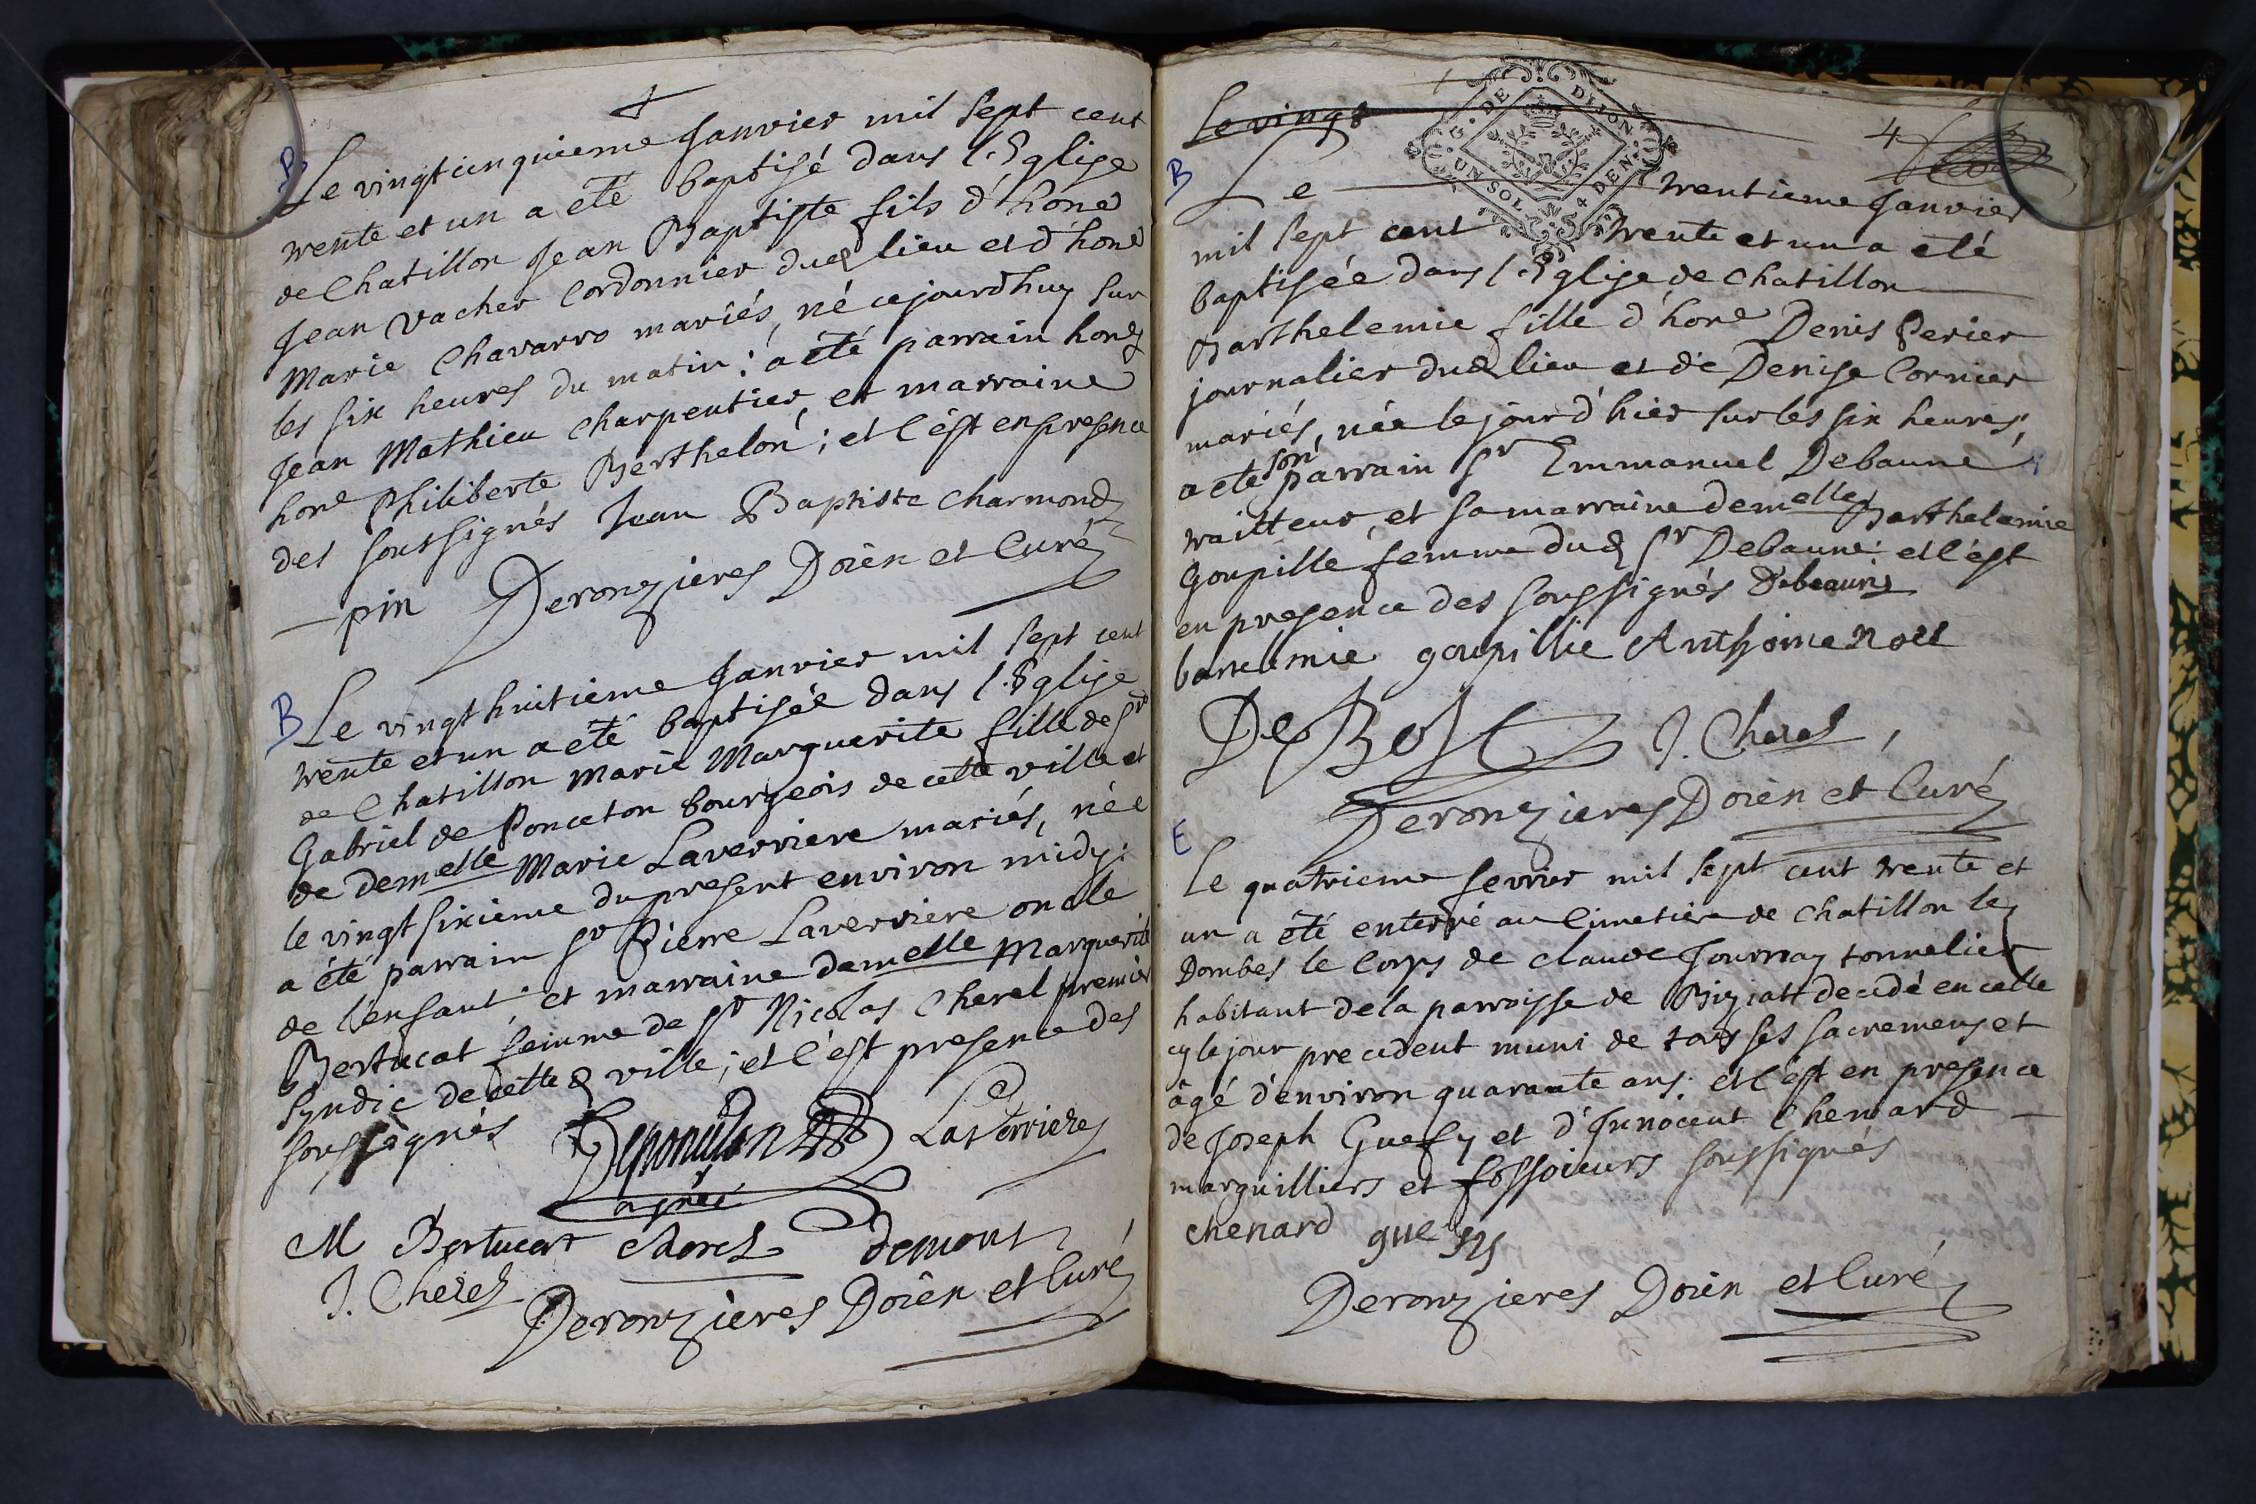 B Le vingtcinquieme Janvier mil sept cent
trente et un a eté baptisé dans l'Eglise
de Chatillon Jean Baptiste fils d'hone
Jean Vacher Cordonnier dud lieu et d'hone
Marie Chavarro mariés, né cejourdhuy sur
les six heures du matin: a été parrain hone
Jean Mathieu Charpentier, et marraine
hone Philiberte Berthelon; et c'est en presence
des soussignés Jean Baptiste Charmond
pin Deronzieres Doïen et Curé
B Le vingthuitieme Janvier mil sept cent
trente et un a été baptisée dans l'Eglise
de Chatillon Marie Marguerite fille de sr
Gabriel de Ponceton bourgeois de cette ville et
de demelle Marie Laverriere mariés, née
le vingtsixieme du present environ midy:
a été parrain sr Pierre Laverriere oncle
de l'enfant, et marraine demelle Marguerite
Bertucat femme de sr Nicolas Cherel premier
syndic de cette d ville; et c'est presence des
soussignés Deponceton Laverriere
M Bertucat Cherel demont
J. Cherel Deronzières Doïen et Curé
Le vingt
G. DE DIJON
UN SOL 4 DEN
4
B Le trentieme Janvier
mil sept cent trente et un a eté
baptisée dans l'Eglise de Chatillon
Barthelemie fille d'hone Denis Perier
journalier dud lieu et de Denise Cornier
mariés, née le jour d'hier sur les six heures
a eté son parrain sr Emmanuel Debaune
traitteur, et sa marraine demelle Barthelemie
Goupille femme dud sr Debaune: et c'est
en presence des soussignés Debeaune
bartelemie goupillie Anthoine Noel
DeBost J. Cherel
Deronzieres Doïen et Curé
E Le quatrieme fevrier mil sept cent trente et
un a été enterré au Cimetière de Chatillon les
Dombes le Corps de claude Journay tonnelier
habitant de la parroisse de Biziatt decedé en cette
cy le jour precedent muni de tous ses sacremens et
âgé d'environ quarante ans. et c'est en presence
de Joseph Guesy et d'Innocent Chenard
marguilliers et fossoieurs soussignés
chenard
Deronzieres Doïen et Curé